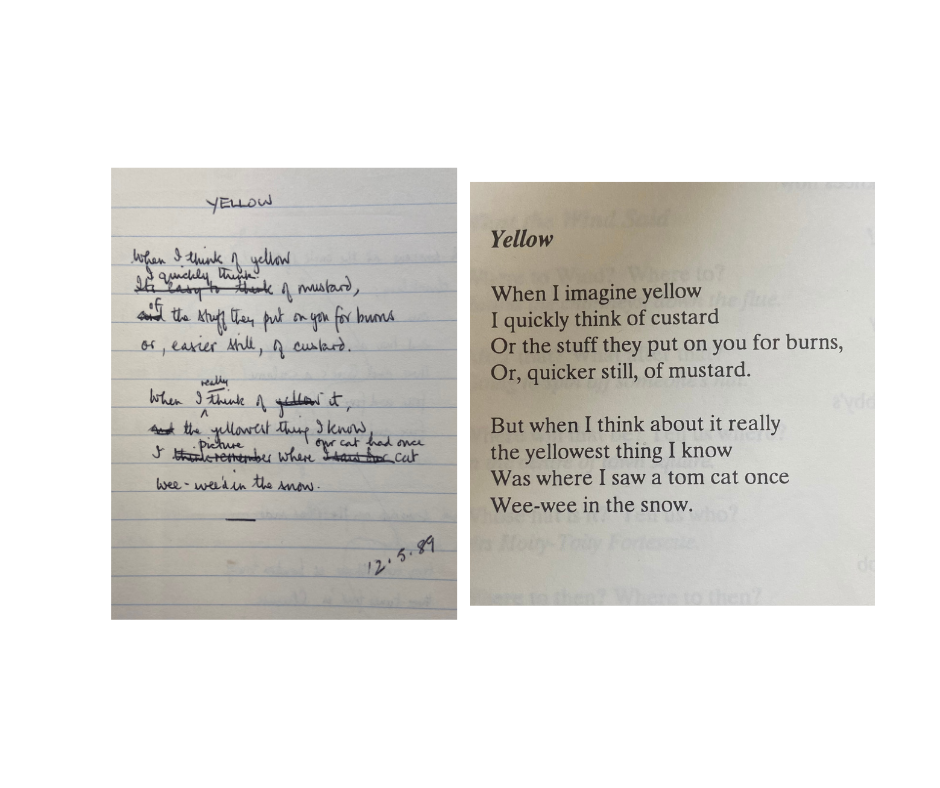 YELLOW
When I think of yellow
I quickly think
It's easy to think of mustard,
of
and the stuff they put on you for burns
or, easier still, of custard.
really
When I think of yellow it,
and the yellowest thing I know,
picture our cat had once
I think remember where I saw her cat
wee-wee'd in the snow.
12.5.89
Yellow
When I imagine yellow
I quickly think of custard
Or the stuff they put on you for burns,
Or, quicker still, of mustard.
But when I think about it really
the yellowest thing I know
Was where I saw a tom cat once
Wee-wee in the snow.